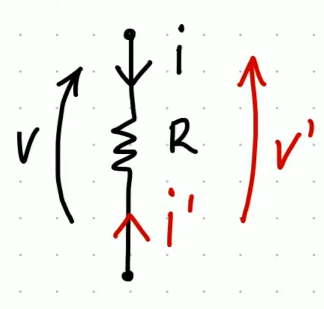 i
V R V'
i'